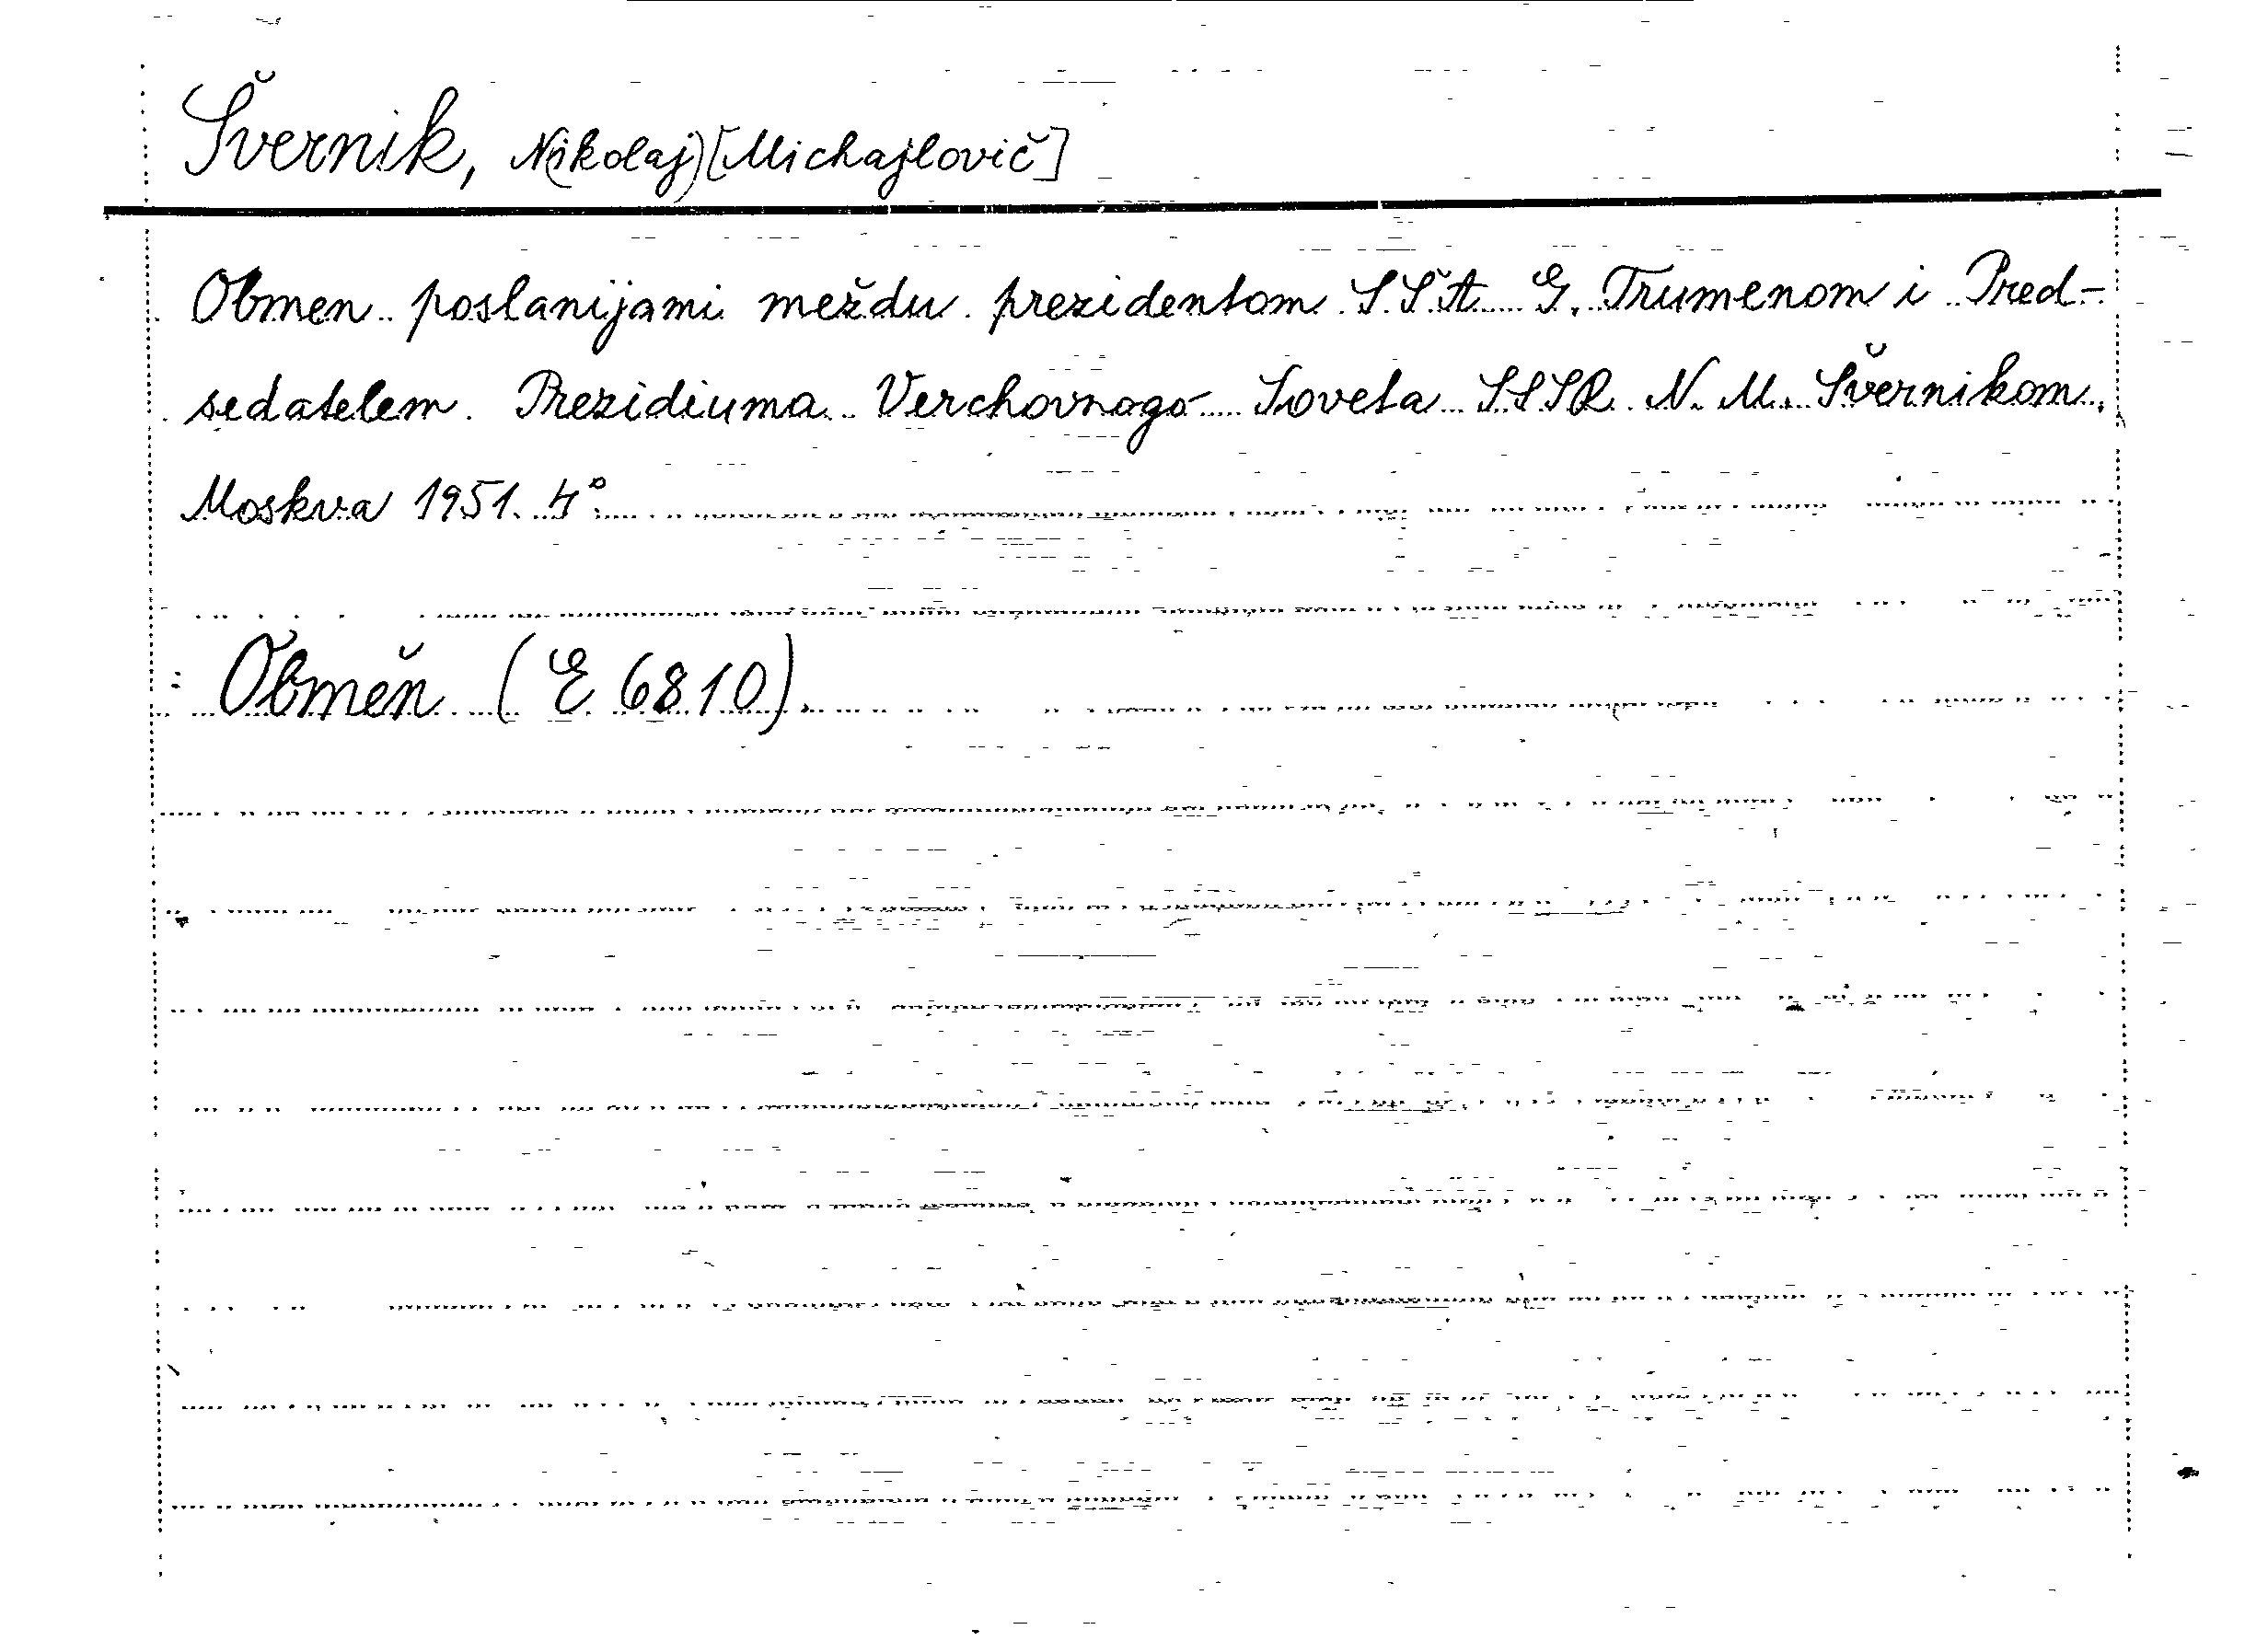 Švernik, N(ikolaj) [Michajlovič]
Obmen poslanijami meždu prezidentom SŠA G. Trumenom i Pred-
sedatelem Prezidiuma Verchovnogo Soveta SSSR N. M. Švernikom.
Moskva 1951. 4°
Obměn (E 6810).